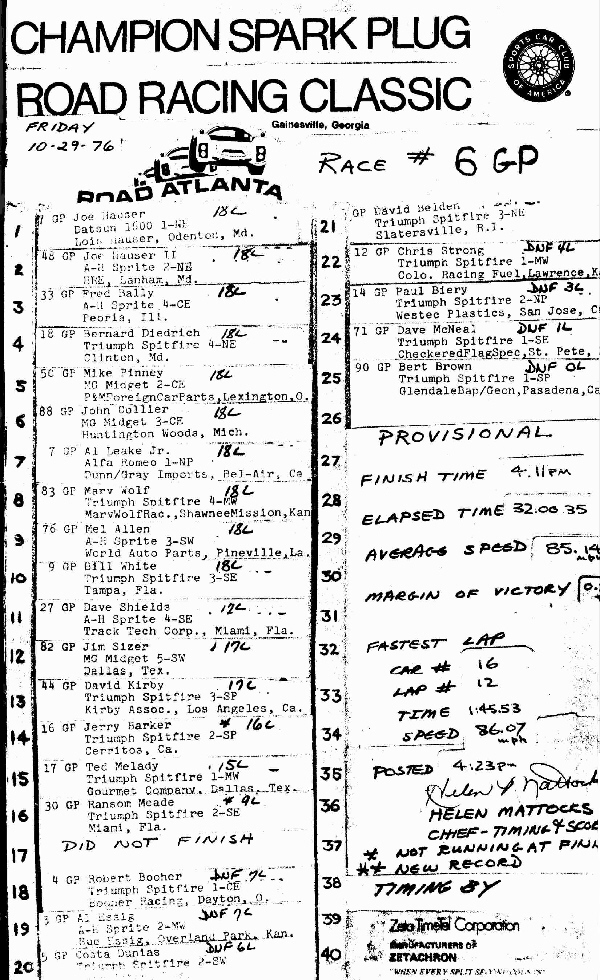 CHAMPION SPARK PLUG
ROAD RACING CLASSIC
SPORTS CAR CLUB OF AMERICA
Gainesville, Georgia
FRIDAY
10-29-76
ROAD ATLANTA
RACE # 6 GP
1 GP Joe Hauser 18L
Datsun 1500 1-NE
Lois Hauser, Odenton, Md.
2 48 GP Joe Hauser II 18L
A-H Sprite 2-NE
Lanham, Md.
3 33 GP Fred Bally 18L
A-H Sprite 4-CE
Peoria, Ill.
4 18 GP Bernard Diedrich 18L
Triumph Spitfire 4-NE
Clinton, Md.
5 GP Mike Pinney 18L
MG Midget 2-CE
P&MForeignCarParts,Lexington,O.
6 88 GP John Collier 18L
MG Midget 3-CE
Huntington Woods, Mich.
7 7 GP Al Leake Jr. 18L
Alfa Romeo 1-NP
Dunn/Gray Imports, Bel-Air, Ca
8 83 GP Marv Wolf 18L
Triumph Spitfire 4-MW
MarvWolfRac.,ShawneeMission,Kan
9 76 GP Mel Allen 18L
A-H Sprite 3-SW
World Auto Parts, Pineville,La.
10 9 GP Bill White 18L
Triumph Spitfire 3-SE
Tampa, Fla.
11 27 GP Dave Shields 17L
A-H Sprite 4-SE
Track Tech Corp., Miami, Fla.
12 82 GP Jim Sizer 17L
MG Midget 5-SW
Dallas, Tex.
13 44 GP David Kirby 17L
Triumph Spitfire 3-SP
Kirby Assoc., Los Angeles, Ca.
14 16 GP Jerry Barker * 16L
Triumph Spitfire 2-SP
Cerritos, Ca.
15 17 GP Ted Melady 15L
Triumph Spitfire 1-MW
Gourmet Company, Dallas, Tex.
16 30 GP Ransom Meade * 9L
Triumph Spitfire 2-SE
Miami, Fla.
17 DID NOT FINISH
18 4 GP Robert Booher DNF 7L
Triumph Spitfire 1-CE
Booher Racing, Dayton, O.
19 3 GP Al Essig DNF 7L
A-H Sprite 2-MW
Sue Essig, Overland Park, Kan.
20 5 GP Costa Dunias DNF 6L
Triumph Spitfire 2-SW
21 GP David Belden
Triumph Spitfire 3-NE
Slatersville, R.I.
22 12 GP Chris Strong DNF 4L
Triumph Spitfire 1-MW
Colo. Racing Fuel,Lawrence,K
23 14 GP Paul Biery DNF 3L
Triumph Spitfire 2-NP
Westec Plastics, San Jose, C
24 71 GP Dave McNeal DNF 1L
Triumph Spitfire 1-SE
CheckeredFlagSpec,St. Pete,
25 90 GP Bert Brown DNF 0L
Triumph Spitfire 1-SP
GlendaleBap/Geon,Pasadena,Ca
26
PROVISIONAL
27
FINISH TIME 4:11PM
28
ELAPSED TIME 32:00.35
29
AVERAGE SPEED 85.14 mph
30
MARGIN OF VICTORY 0.
31
32 FASTEST LAP
CAR # 16
LAP # 12
33
TIME 1:45.53
34 SPEED 86.07 mph
35 POSTED 4:23pm
Helen V Mattocks
36 HELEN MATTOCKS
CHIEF-TIMING & SCOR
37 * NOT RUNNING AT FINI
** NEW RECORD
38 TIMING BY
39 Zeta TimeTel Corporation
MANUFACTURERS OF
40 ZETACHRON
"WHEN EVERY SPLIT SECOND COUNTS"